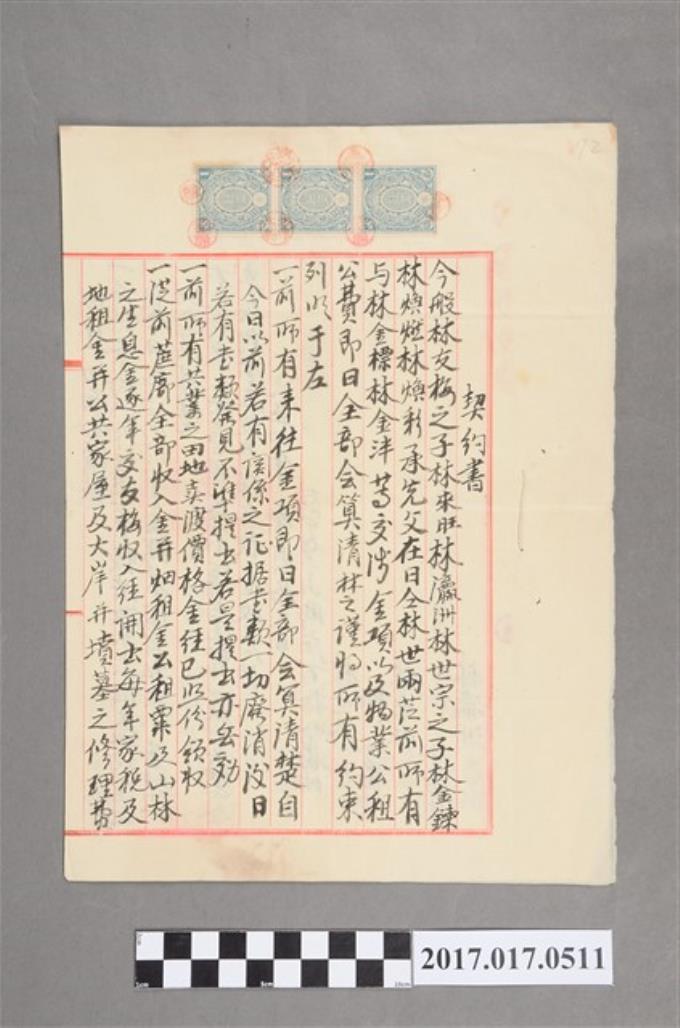 契約書
今般林友梅之子林來旺林瀛洲林世宗之子林金鍊
林煥燃林煥彩承先父在日仝林世兩莅前所有
与林金標林金泮等交涉金項以及物業公租
公費即日全部会算清楚之謹將所有約束
列明于左
一前所有來往金項即日全部会算清楚自
今日以前若有関係之証据書類一切廃消後日
若有書類発見不準提出若是提出亦無効
一前所有共業之田地賣渡價格金經已照份領収
一從前蔗廍全部収入金並畑租金公租粟及山林
之生息金逐年交友梅収入經開出每年家税及
地租金並公共家屋及大岸並墳墓之修理費
2017.017.0511